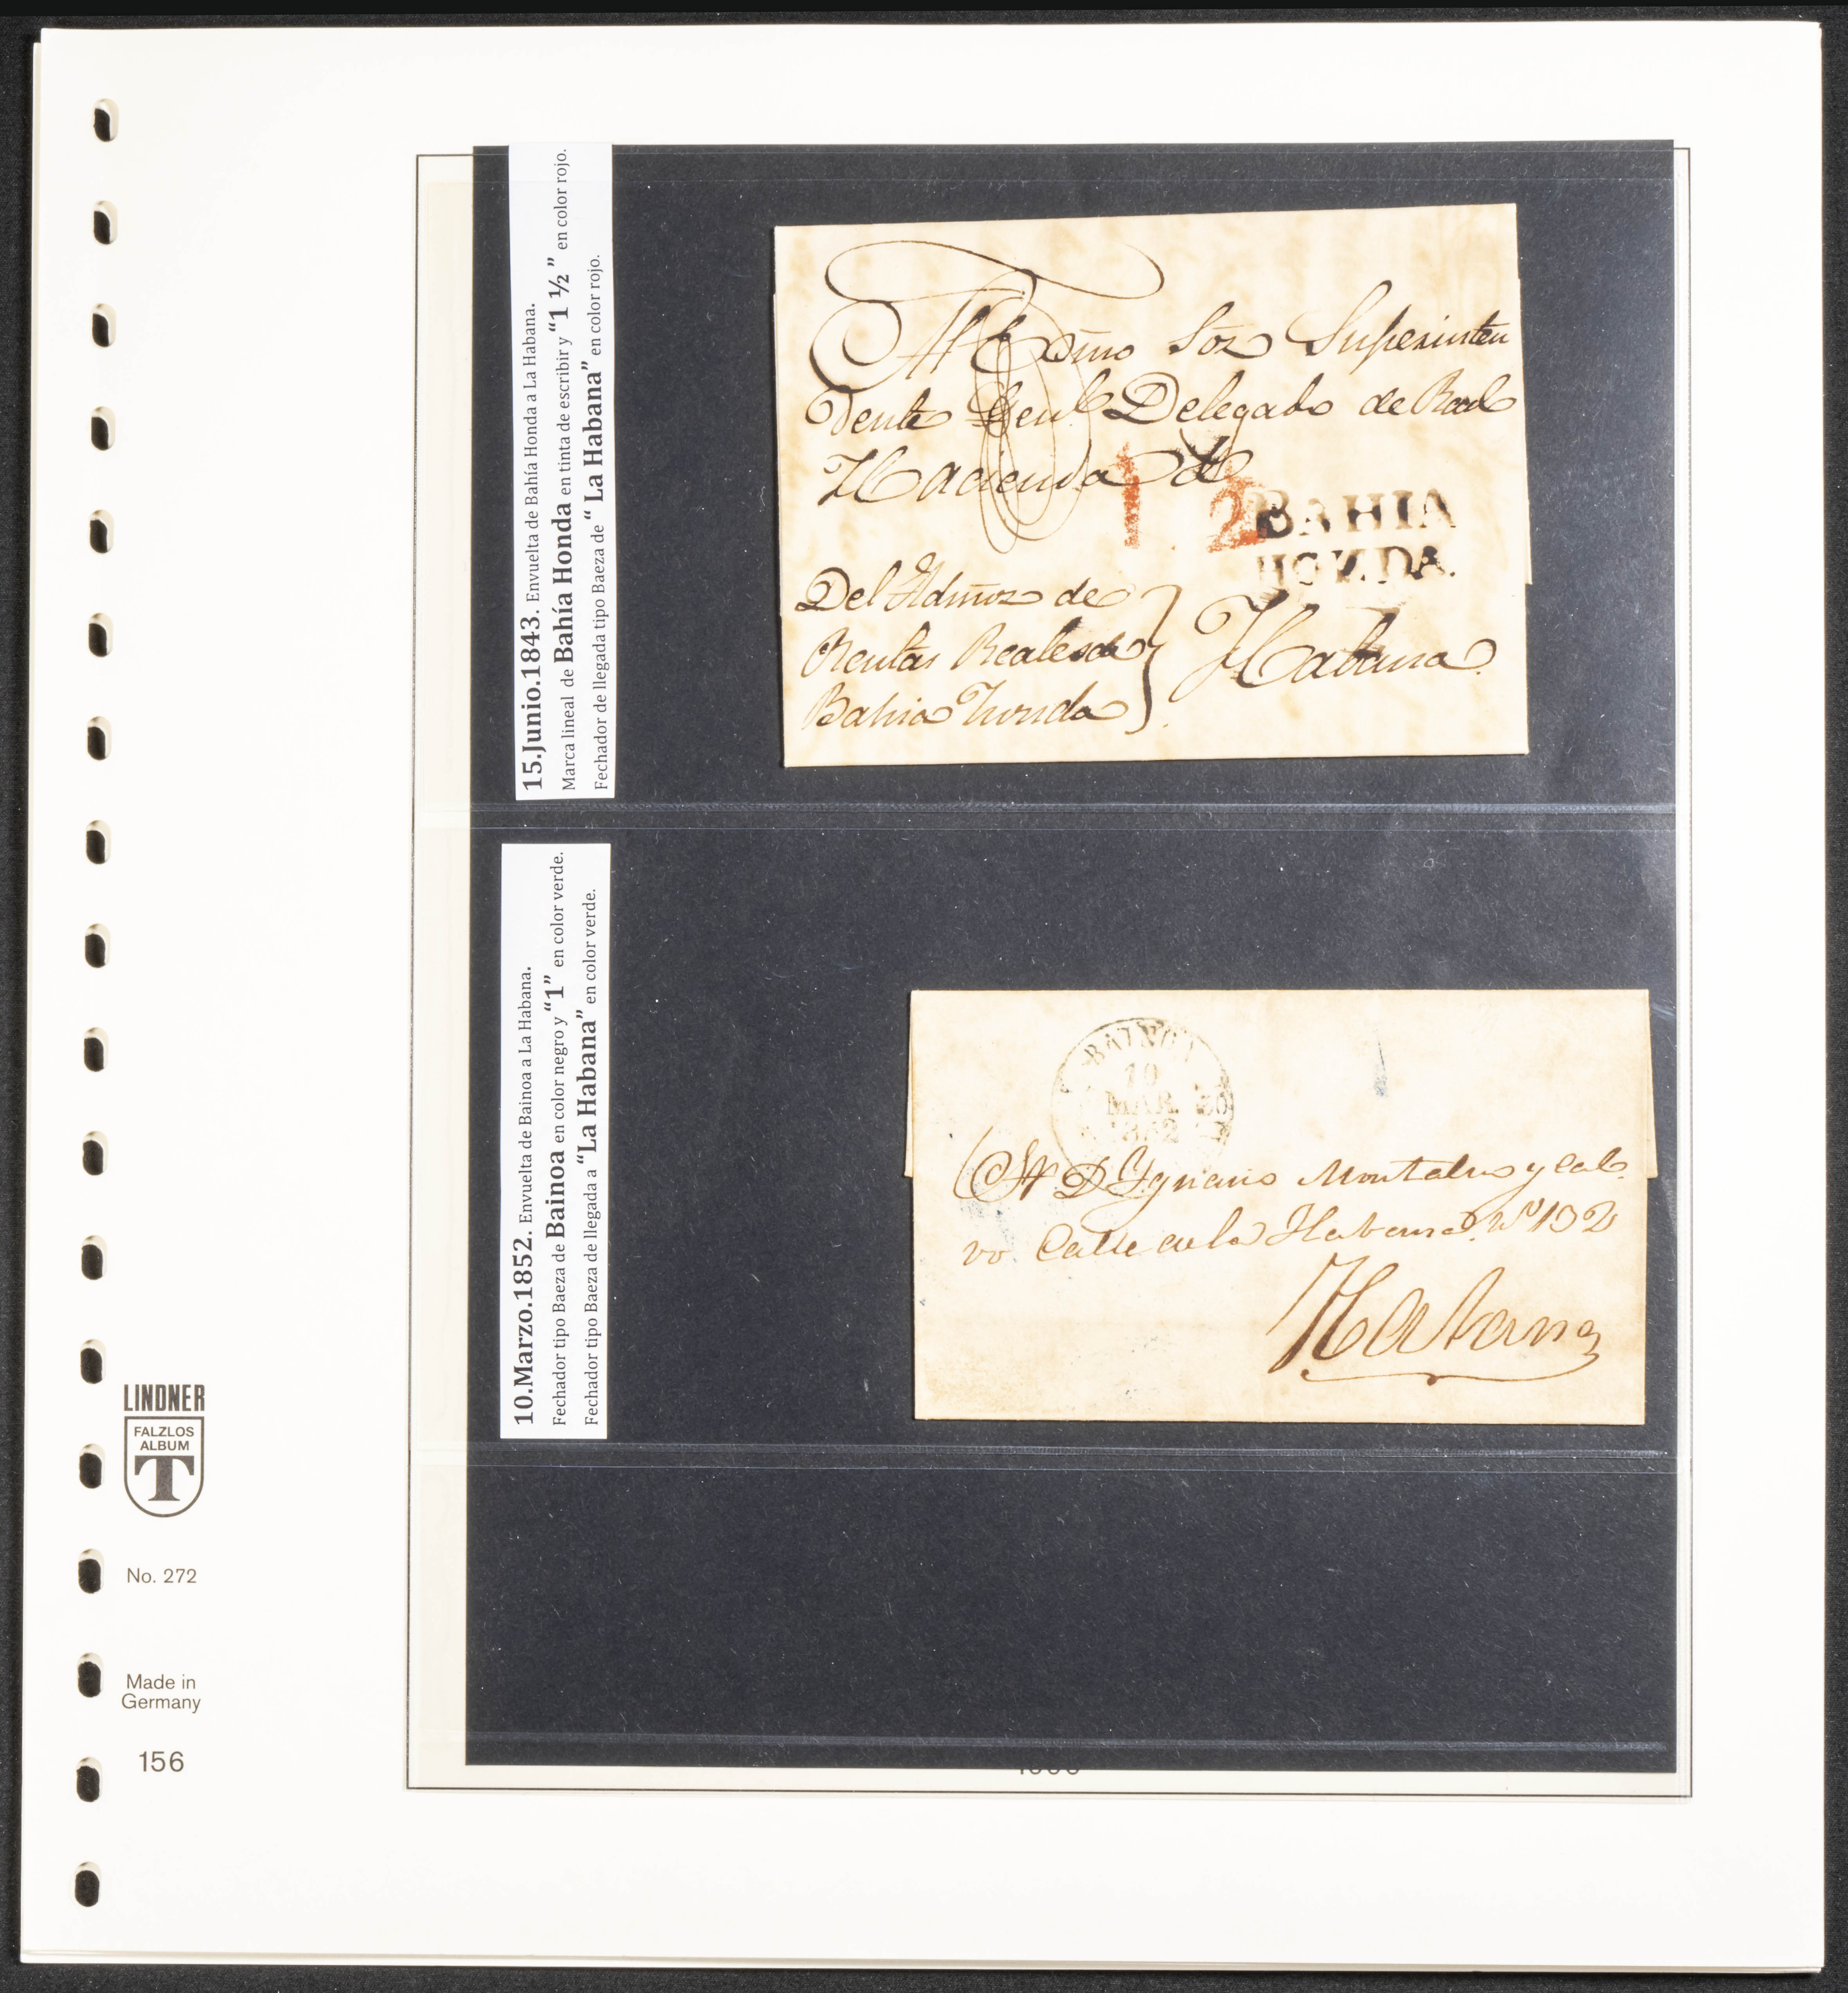 15.Junio.1843. Envuelta de Bahía Honda a La Habana.
Marca lineal de Bahía Honda en tinta de escribir y “1 ½ ” en color rojo.
Fechador de llegada tipo Baeza de “ La Habana” en color rojo.
Al Exmo Sor Superinten
dente Genl Delegado de Real
Hacienda de
1 2
BAHIA
HONDA.
Del Admor de
Rentas Reales de
Bahia Honda
Habana
10.Marzo.1852. Envuelta de Bainoa a La Habana.
Fechador tipo Baeza de Bainoa en color negro y “1” en color verde.
Fechador tipo Baeza de llegada a “La Habana” en color verde.
BAINOA
10
MAR.
1852
A D Ygnacio Montalvo y Cal
vo Calle de la Habana Nº 132
Habana
LINDNER
FALZLOS
ALBUM
T
No. 272
Made in
Germany
156